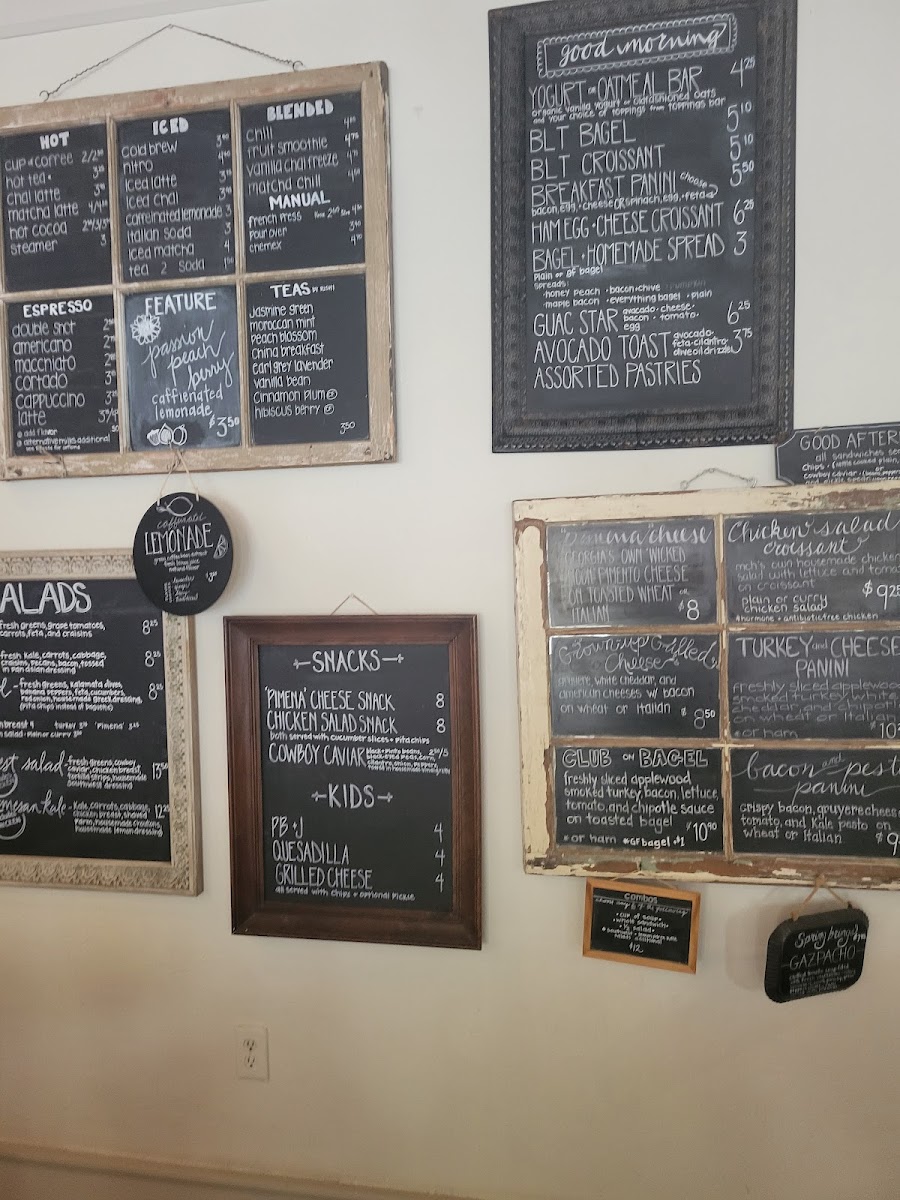 HOT
cup of coffee
hot tea
chai latte
matcha latte
hot cocoa
steamer 3
ICED
cold brew
nitro
iced latte
iced chai
caffeinated lemonade 3
italian soda 3
iced matcha 4
tea 2 soda
BLENDED
chill
fruit smoothie 4.75
vanilla chai freeze
matcha chill
MANUAL
french press
pour over
chemex
ESPRESSO
double shot
americano
macchiato
cortado
cappuccino
latte
add flavor .50
alternative milks additional
FEATURE
passion
peach
berry
caffienated
lemonade
$3.50
TEAS BY RISHI
Jasmine green
moroccan mint
peach blossom
china breakfast
earl grey lavender
vanilla bean
Cinnamon Plum
hibiscus berry
3.50
good morning
YOGURT or OATMEAL BAR 4.25
organic vanilla yogurt or oldfashioned oats
and your choice of toppings from toppings bar
BLT BAGEL 5.10
BLT CROISSANT 5.10
BREAKFAST PANINI choose 5.50
bacon, egg + cheese OR spinach, egg, + feta
HAM EGG + CHEESE CROISSANT 6.25
BAGEL + HOMEMADE SPREAD 3
plain or GF bagel
spreads:
honey peach • bacon + chive
maple bacon • everything bagel • plain
GUAC STAR avocado • cheese • bacon • tomato • egg 6.25
AVOCADO TOAST avocado • feta • cilantro • olive oil drizzle 3.75
ASSORTED PASTRIES
caffeinated
LEMONADE
GOOD AFTER
all sandwiches se
chips
cowboy caviar
ALADS
fresh greens, grape tomatoes,
carrots, feta, and craisins 8.25
fresh kale, carrots, cabbage,
craisins, pecans, bacon, tossed
in pan asian dressing 8.25
fresh greens, kalamata olives,
banana peppers, feta, cucumbers,
red onion, housemade greek dressing,
(pita chips instead of baguette) 8.25
n breast 4 turkey 'Pimena'
n salad - plain or curry
est salad - fresh greens, cowboy
caviar, chicken breast,
tortilla strips, housemade
southwest dressing 13.50
mesan kale - Kale, carrots, cabbage,
chicken breast, shaved
parm, housemade croutons,
housemade lemon dressing 12.25
SNACKS
'PIMENA' CHEESE SNACK 8
CHICKEN SALAD SNACK 8
both served with cucumber slices + pita chips
COWBOY CAVIAR black + pinto beans,
black-eyed peas, corn,
cilantro, onion, peppers,
tossed in housemade vinaigrette
KIDS
PB + J 4
QUESADILLA 4
GRILLED CHEESE 4
all served with chips + optional pickle
"Pimena" cheese
GEORGIA'S OWN 'WICKED
GOOD' PIMENTO CHEESE
ON TOASTED WHEAT OR
ITALIAN $8
Chicken salad
croissant
mch's own housemade chicken
salad with lettuce and tomato
on croissant
plain or curry
chicken salad $9.25
hormone + antibiotic free chicken
Grown up Grilled
Cheese
gruyere, white cheddar, and
american cheeses w/ bacon
on wheat or italian $8.50
TURKEY and CHEESE
PANINI
freshly sliced applewood
smoked turkey, white
cheddar, and chipotle
on wheat or Italian
or ham $10
CLUB on BAGEL
freshly sliced applewood
smoked turkey, bacon, lettuce,
tomato, and chipotle sauce
on toasted bagel $10.90
or ham *GF bagel +$1
bacon and pesto
panini
crispy bacon, gruyere cheese
tomato, and kale pesto on
wheat or Italian $9
combos
• cup of soup •
• whole sandwich •
• 1/2 salad •
$12
Spring brings
GAZPACHO